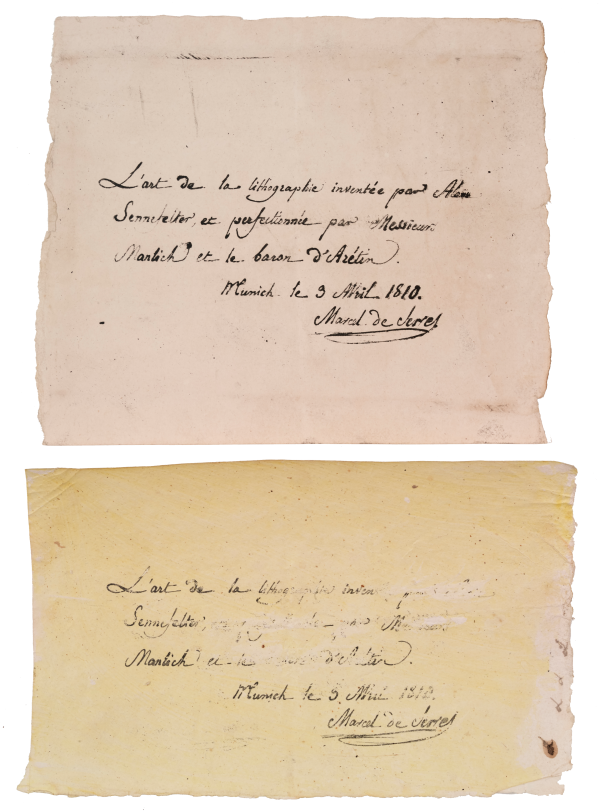 L'art de la lithographie inventée par Alex
Sennefelter, et perfectionnée par Messieurs
Manlich et le baron d'Arétin.
Munich le 3 Avril 1810.
Marcel de Serres
L'art de la lithographie inven
Sennefelter,
Manlich et le d'Arétin.
Munich le 3 Avril 1810.
Marcel de Serres